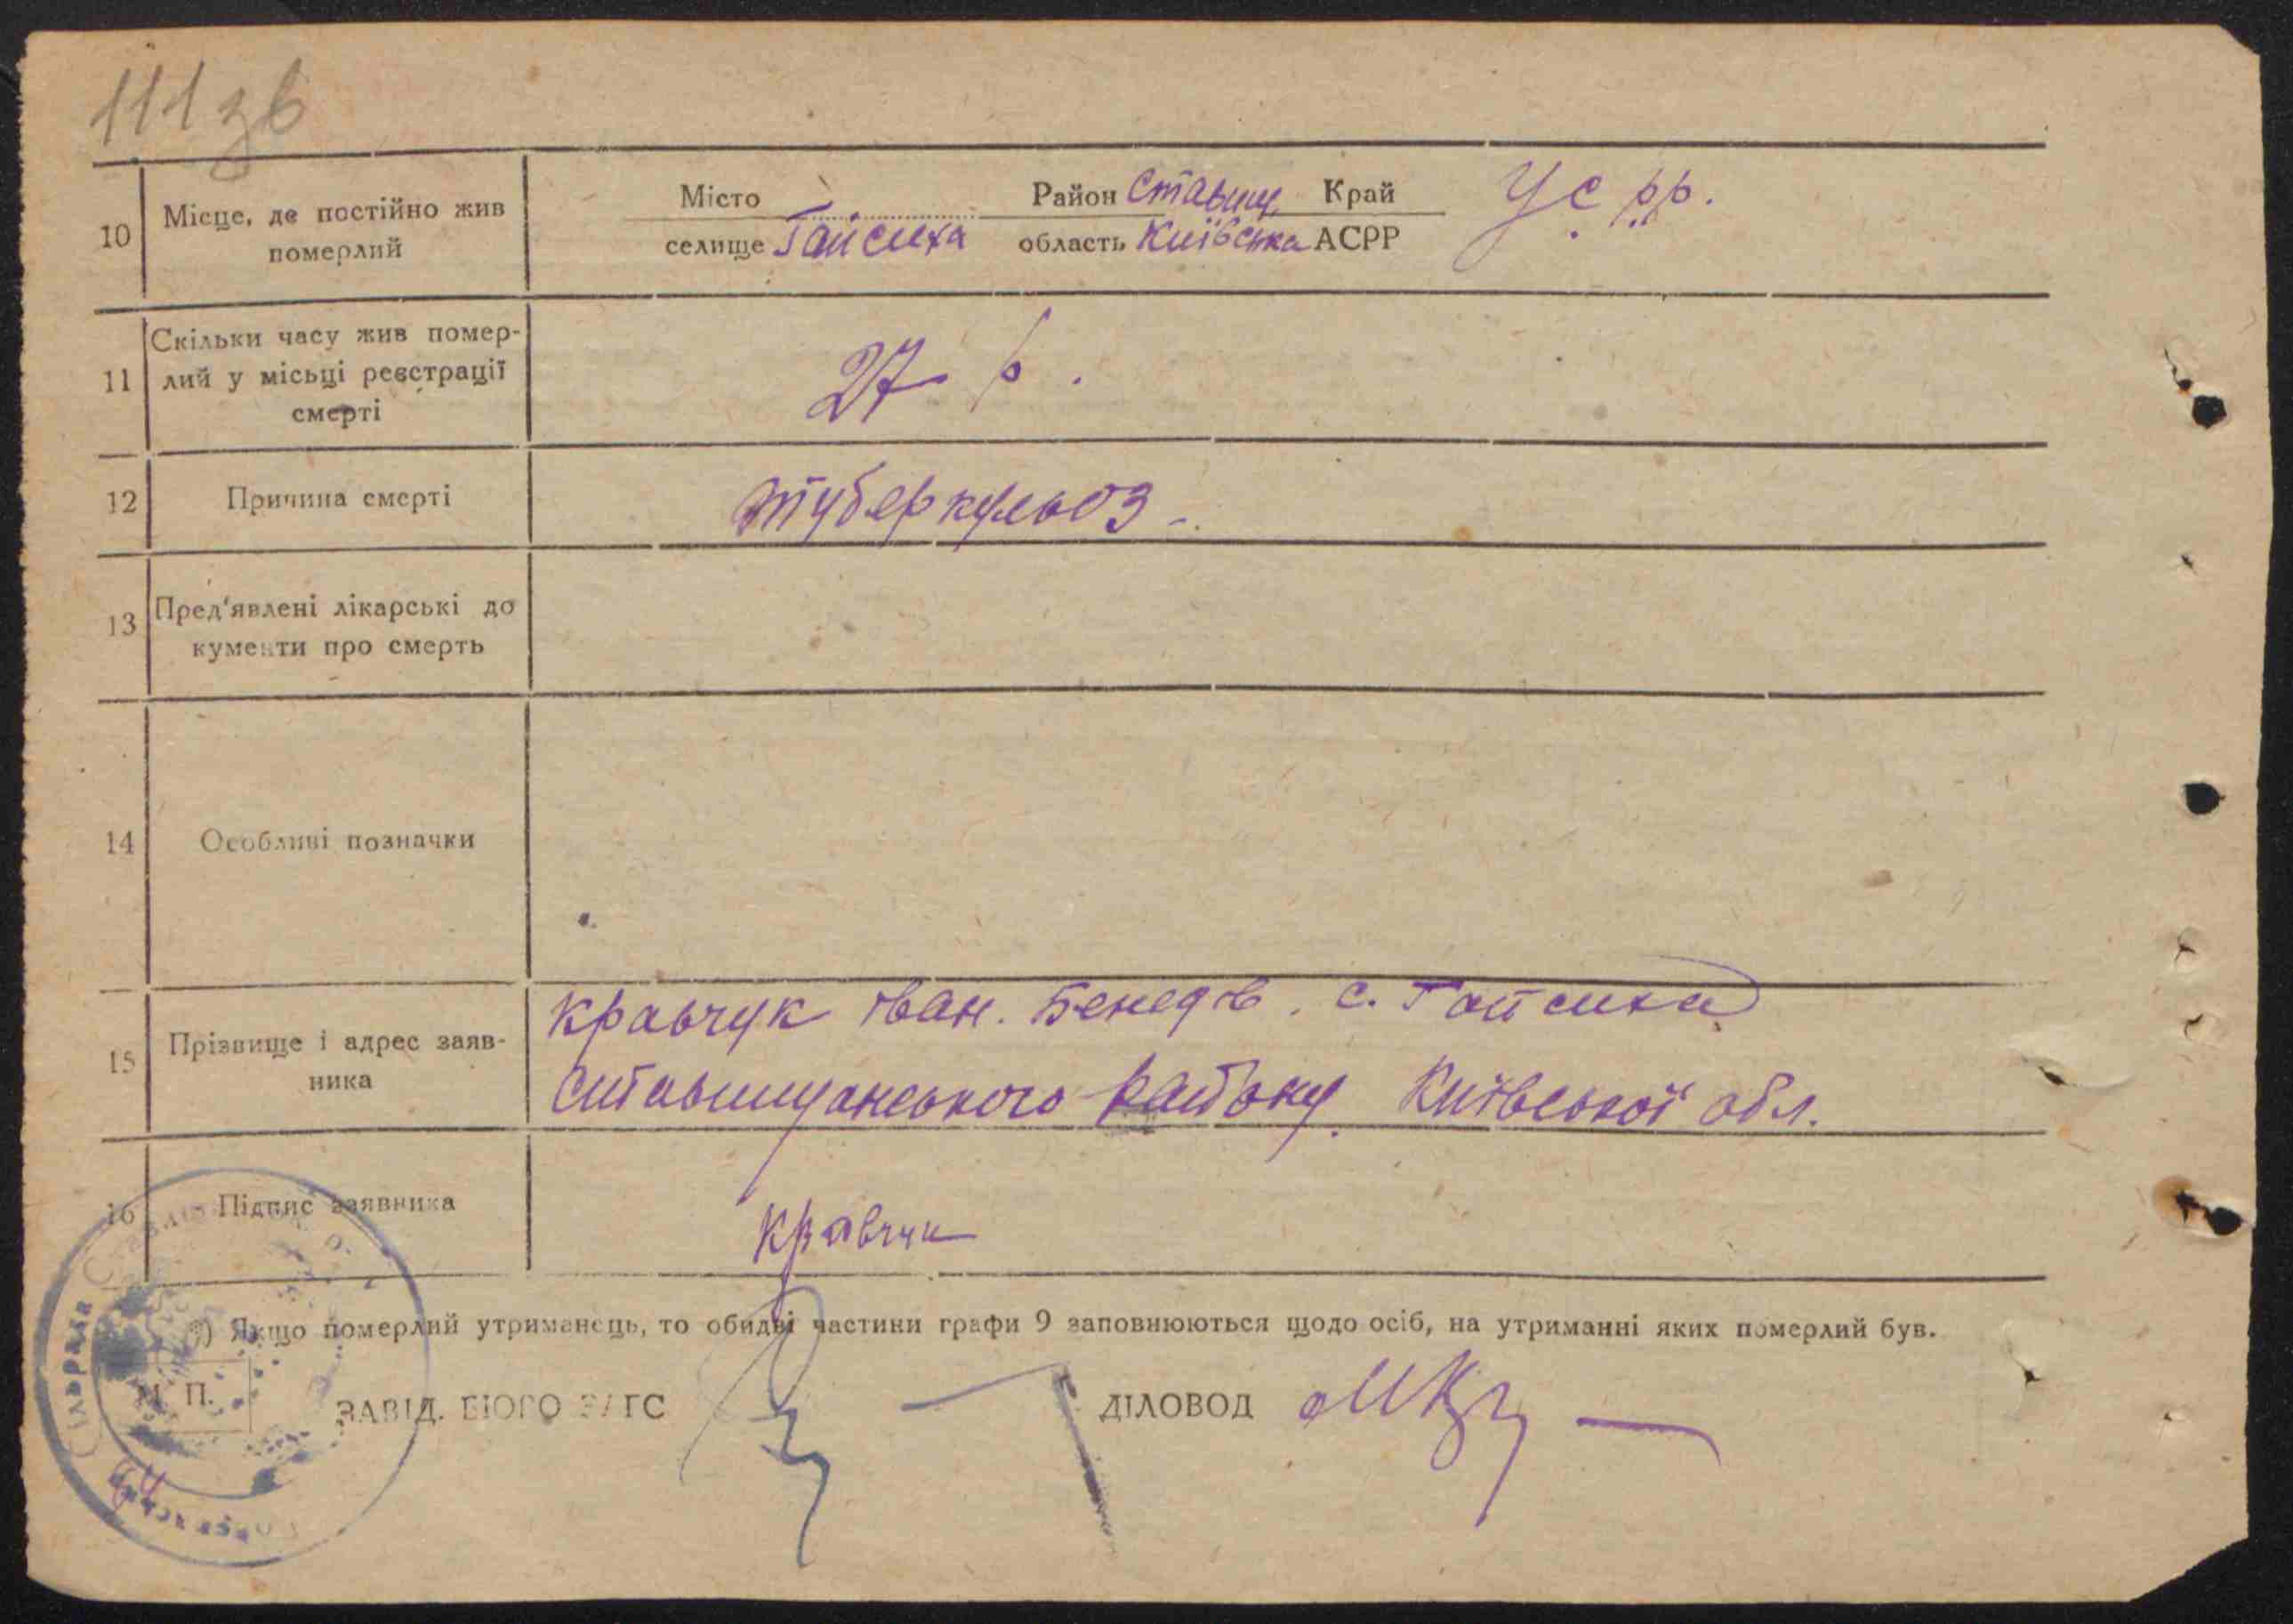 111 зв
10 Місце, де постійно жив померлий
Місто Район Ставищ Край УСРР.
селище Гайсиха область Київська АСРР
11 Скільки часу жив помер-
лий у місьці реєстрації
смерті
27 р.
12 Причина смерті туберкульоз -
13 Пред'явлені лікарські до
кументи про смерть
14 Особливі позначки
15 Прізвище і адрес заяв-
ника
Кравчук Іван. Бенедів. с. Гайсиха
Ставищанського району Київської обл.
16 Підпис заявника Кравчук
*) Якщо померлий утриманець, то обидві частини графи 9 заповнюються щодо осіб, на утриманні яких померлий був.
М. П.
ЗАВІД. БЮРО ЗАГС ДІЛОВОД